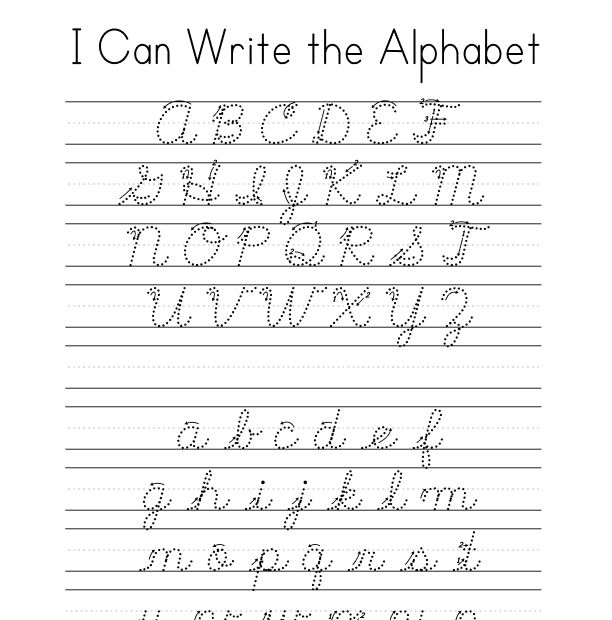 I Can Write the Alphabet
A B C D E F
G H I J K L M
N O P Q R S T
U V W X Y Z
a b c d e f
g h i j k l m
n o p q r s t